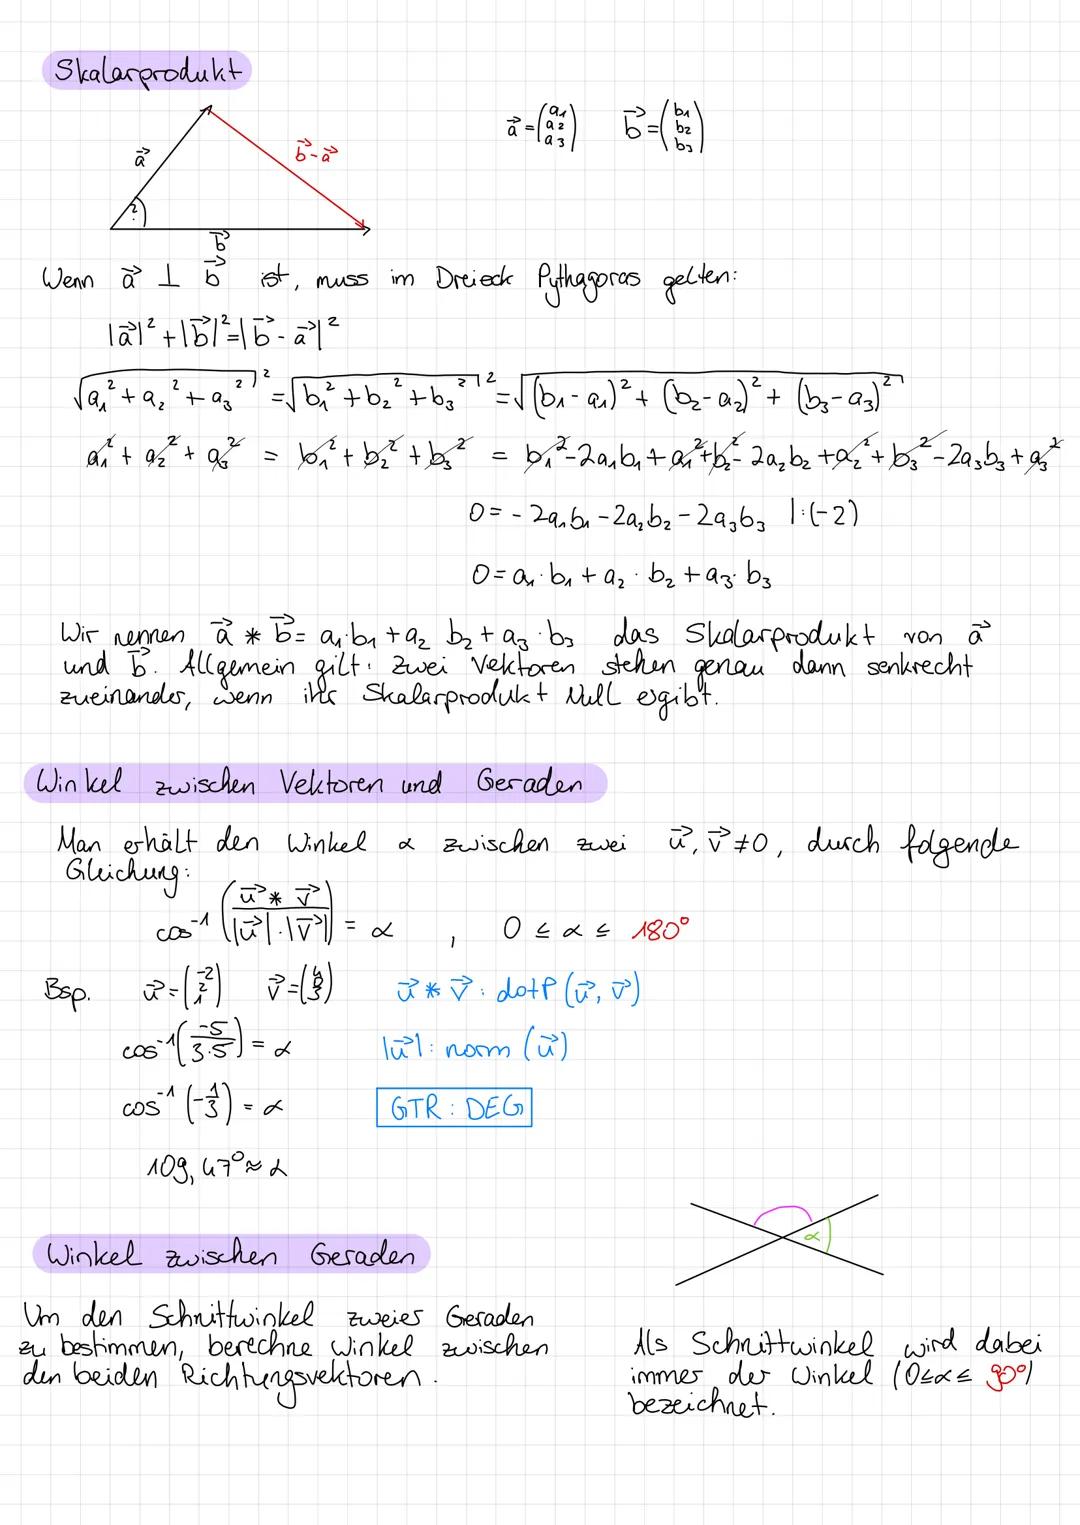 Skalarprodukt
a⃗ = (a₁ a₂ a₃) b⃗ = (b₁ b₂ b₃)
a⃗
b⃗ - a⃗
?
b⃗
Wenn a⃗ ⊥ b⃗ ist, muss im Dreieck Pythagoras gelten:
|a⃗|² + |b⃗|² = |b⃗ - a⃗|²
√(a₁² + a₂² + a₃²)² = √(b₁² + b₂² + b₃²)² = √((b₁ - a₁)² + (b₂ - a₂)² + (b₃ - a₃)²)²
a₁² + a₂² + a₃² = b₁² + b₂² + b₃² = b₁² - 2a₁b₁ + a₁² + b₂² - 2a₂b₂ + a₂² + b₃² - 2a₃b₃ + a₃²
0 = - 2a₁b₁ - 2a₂b₂ - 2a₃b₃ |:(-2)
0 = a₁ · b₁ + a₂ · b₂ + a₃ · b₃
Wir nennen a⃗ * b⃗ = a₁·b₁ + a₂ b₂ + a₃ · b₃ das Skalarprodukt von a⃗
und b⃗. Allgemein gilt: Zwei Vektoren stehen genau dann senkrecht
zueinander, wenn ihr Skalarprodukt Null ergibt.
Winkel zwischen Vektoren und Geraden
Man erhält den Winkel α zwischen zwei u⃗, v⃗ ≠ 0, durch folgende
Gleichung:
cos⁻¹ ((u⃗ * v⃗) / (|u⃗| · |v⃗|)) = α , 0 ≤ α ≤ 180°
Bsp. u⃗ = (-2 2 1) v⃗ = (4 0 3) u⃗ * v⃗ : dotP (u⃗, v⃗)
cos⁻¹ (-5 / 3·5) = α |u⃗| : norm (u⃗)
cos⁻¹ (-1/3) = α GTR : DEG
109,47° ≈ α
α
Winkel zwischen Geraden
Um den Schnittwinkel zweier Geraden
zu bestimmen, berechne Winkel zwischen
den beiden Richtungsvektoren.
Als Schnittwinkel wird dabei
immer der Winkel (0≤α≤ 90°)
bezeichnet.